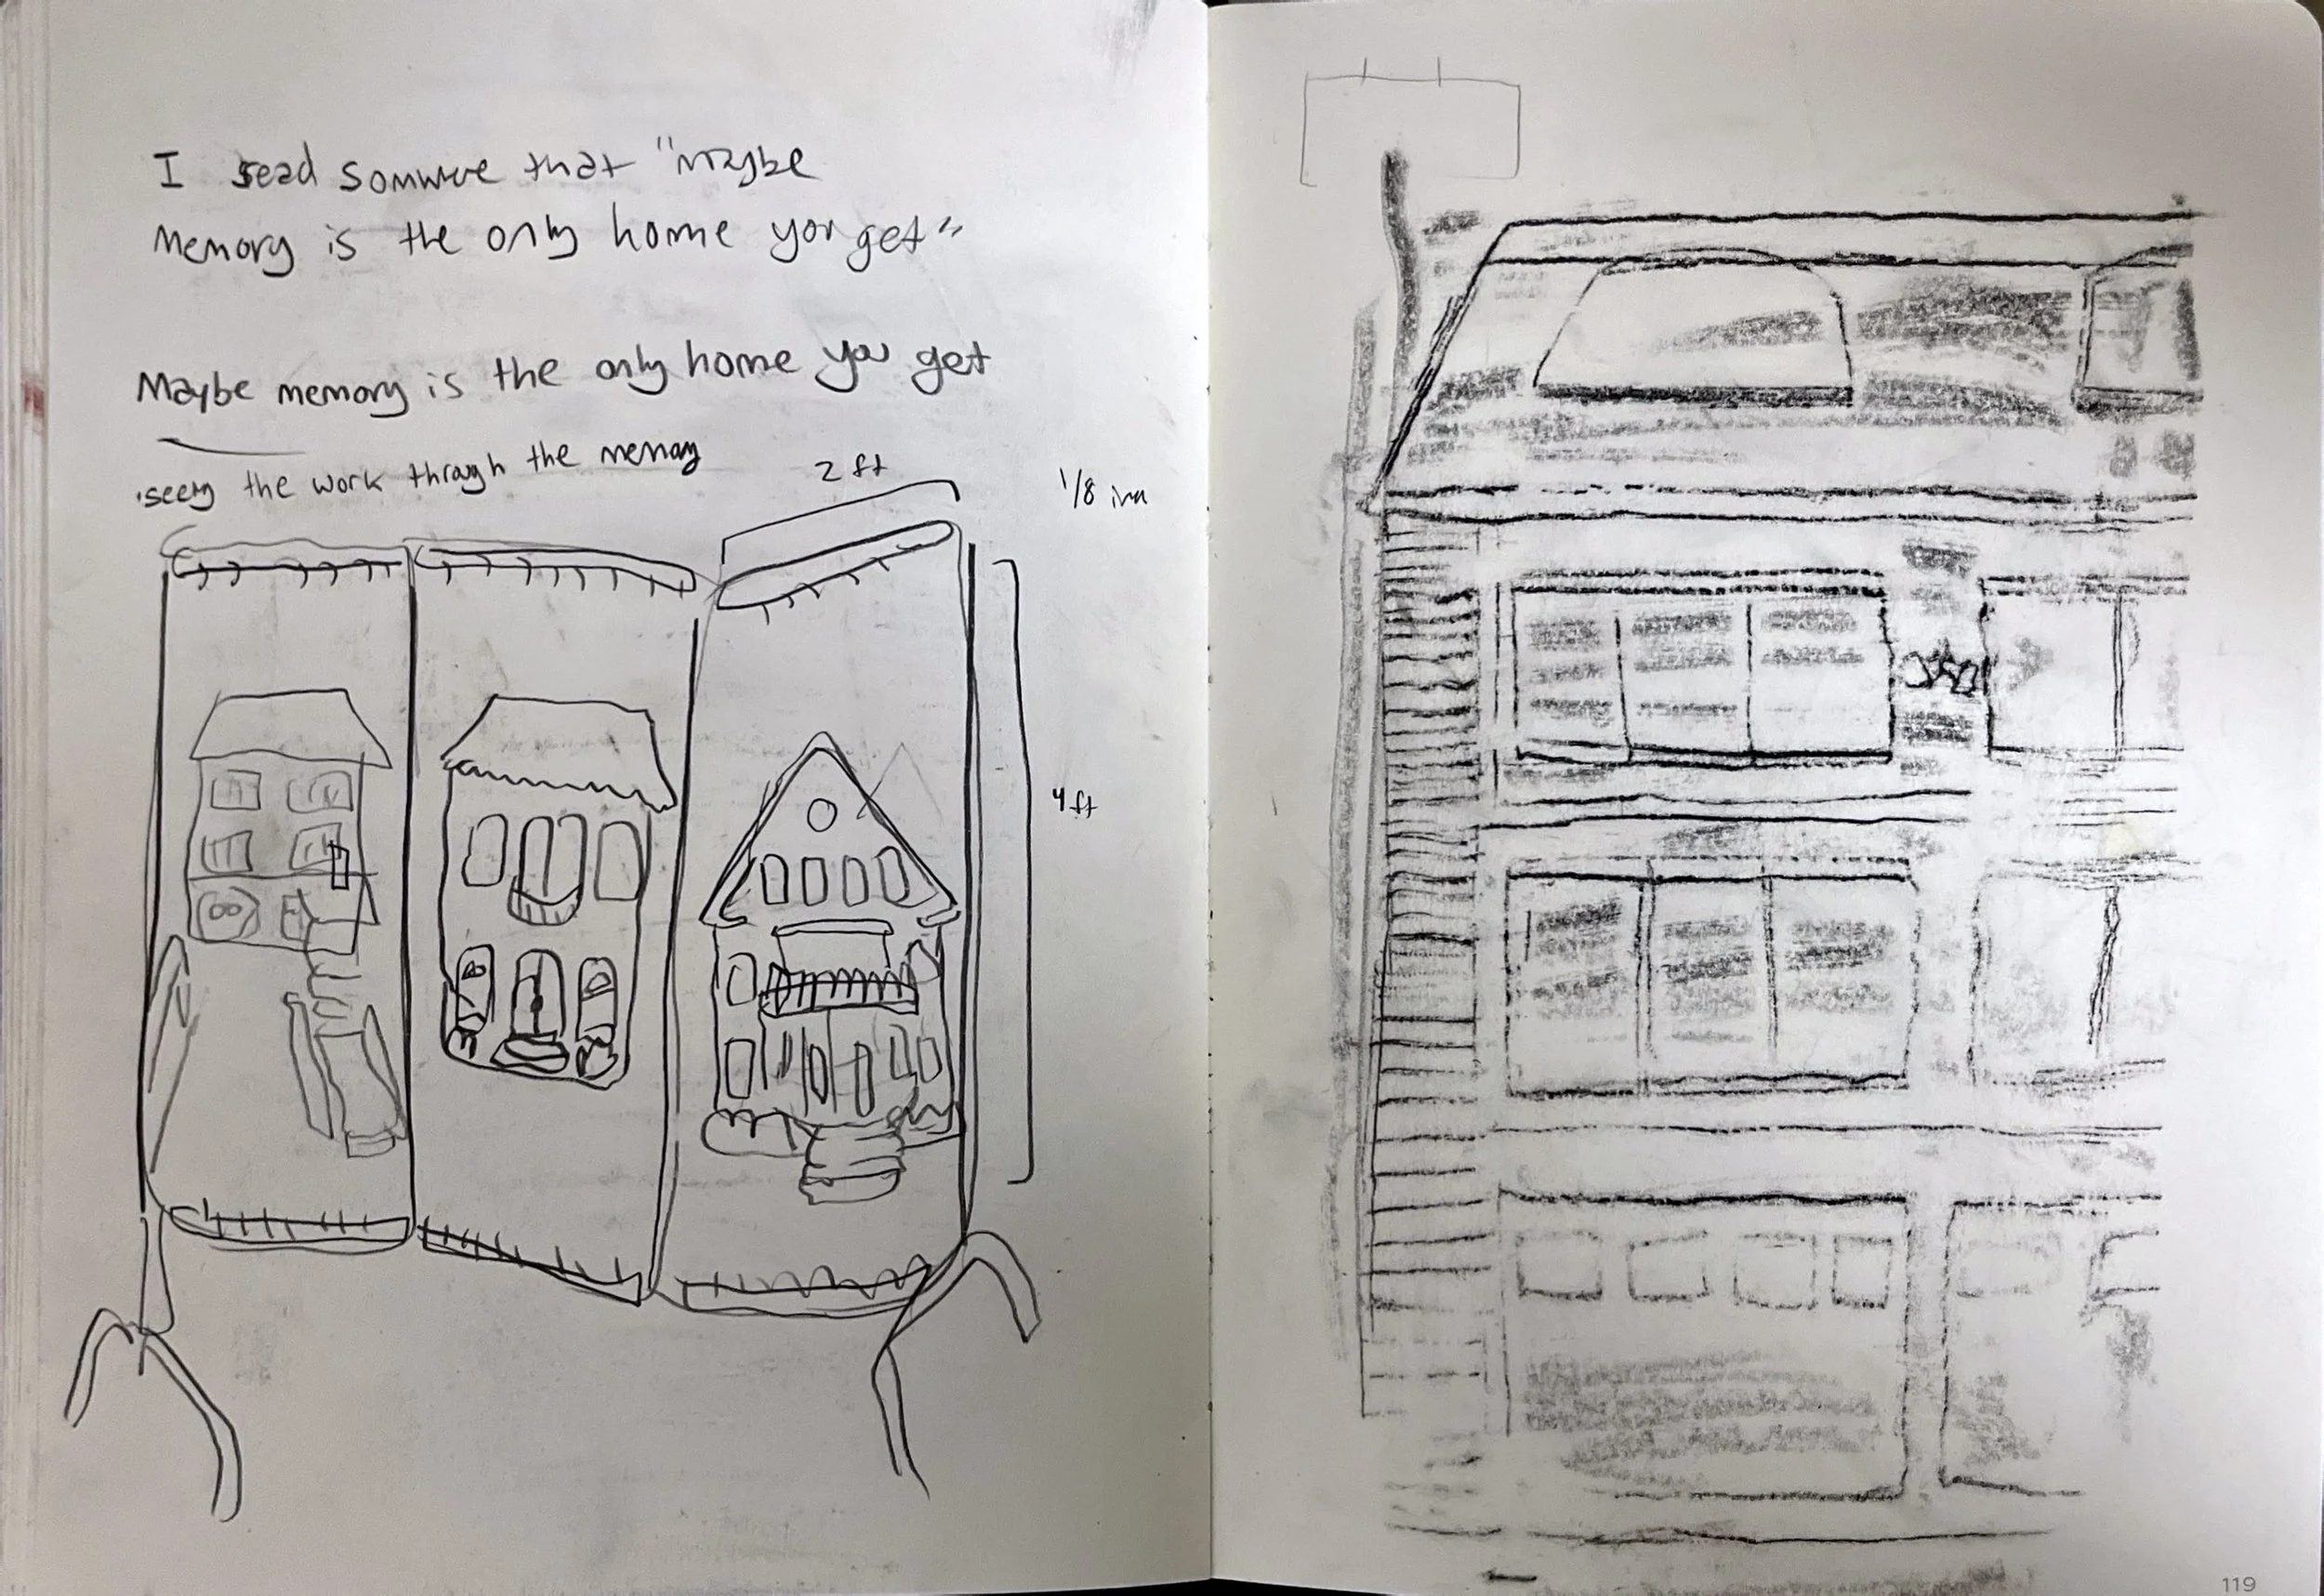 I read somwre that "maybe
memory is the only home you get"
Maybe memory is the only home you get
seeng the work through the memory
2 ft
1/8 in
4 ft
119